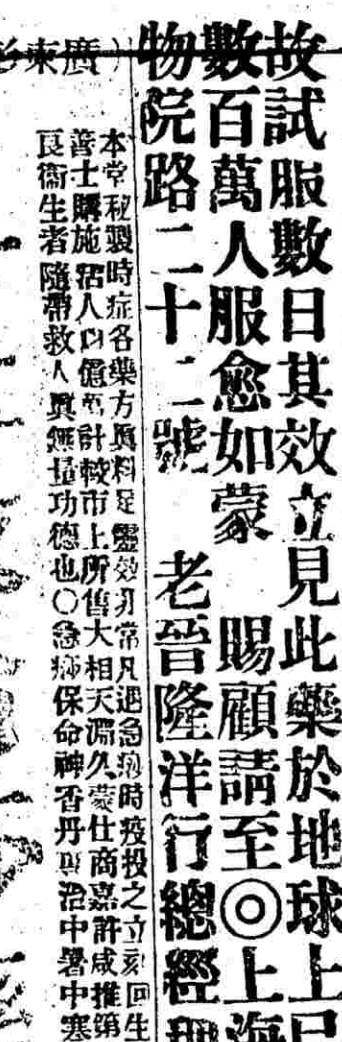 故試服數日其效立見此藥於地球上已
數百萬人服愈如蒙　賜顧請至◎上海
物院路二十二號　老晉隆洋行總經
廣東
本堂秘製時症各藥方眞料足靈效非常凡遇急痧時疫投之立刻回生
善士購施活人以億萬計較市上所售大相天淵久蒙仕商嘉許咸推第
良衞生者隨帶救人眞無量功德也〇急痧保命神香丹專治中暑中寒